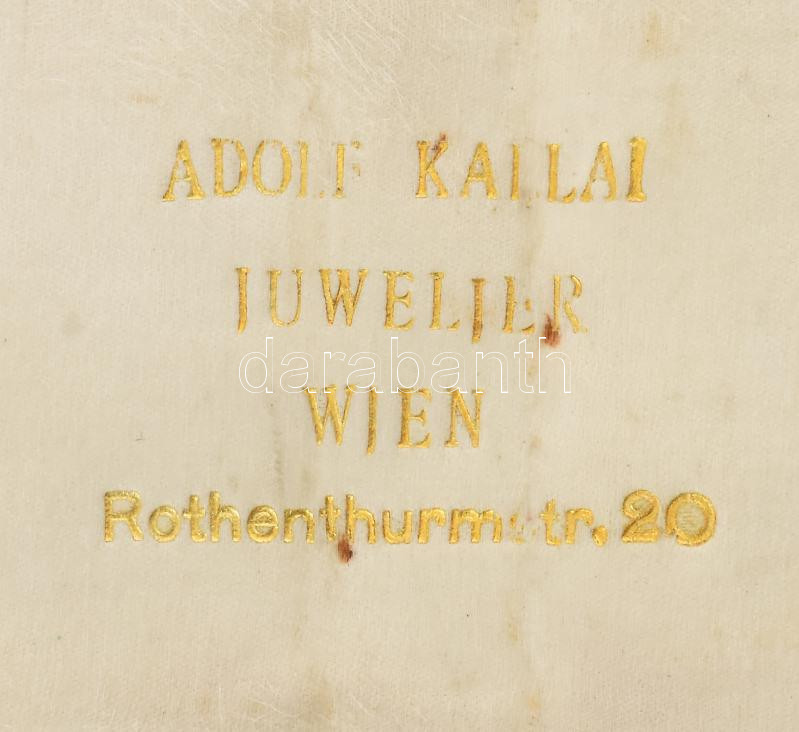 ADOLF KALLAI
JUWELJER
darabanth
WJEN
Rothenthurmstr. 20